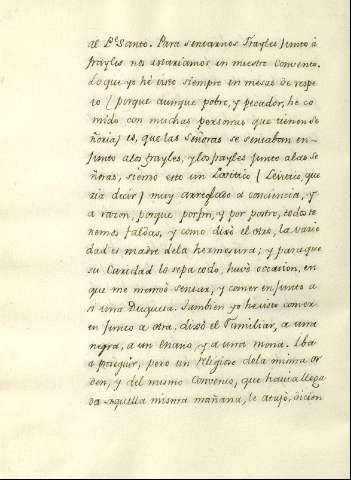 al Pe. Santo. Para sentarnos Frayles junto à
frayles nos estariamos en nuestro Convento.
Lo que yo hè visto siempre en mesas de respe
to (porque aunque pobre, y pecador, he co
mido con muchas personas que tienen Se
ñoria) es, que las Señoras se sentaban en-
junto a los frayles, y los frayles junto a las Se
ñoras, siendo esto un Lavitico (Levitico, que
ria decir) muy arreglado a conciencia, y
a razon, porque por fin, y por postre, todos te
nemos faldas, y como dixo el otro, la varie
dad es madre de la hermosura; y para que
su Caridad lo sepa todo, huvo occasion, en
que me mandò sentar, y comer enjunto a
si una Duquesa. Tambien yo he visto comer
enjunto a otra, dixo el Familiar, a una
negra, a un enano, y a una mona. Iba
a proseguir, pero un Religioso de la misma or
den, y del mismo Convento, que havia llega
do aquella misma mañana, le atajò, dicien